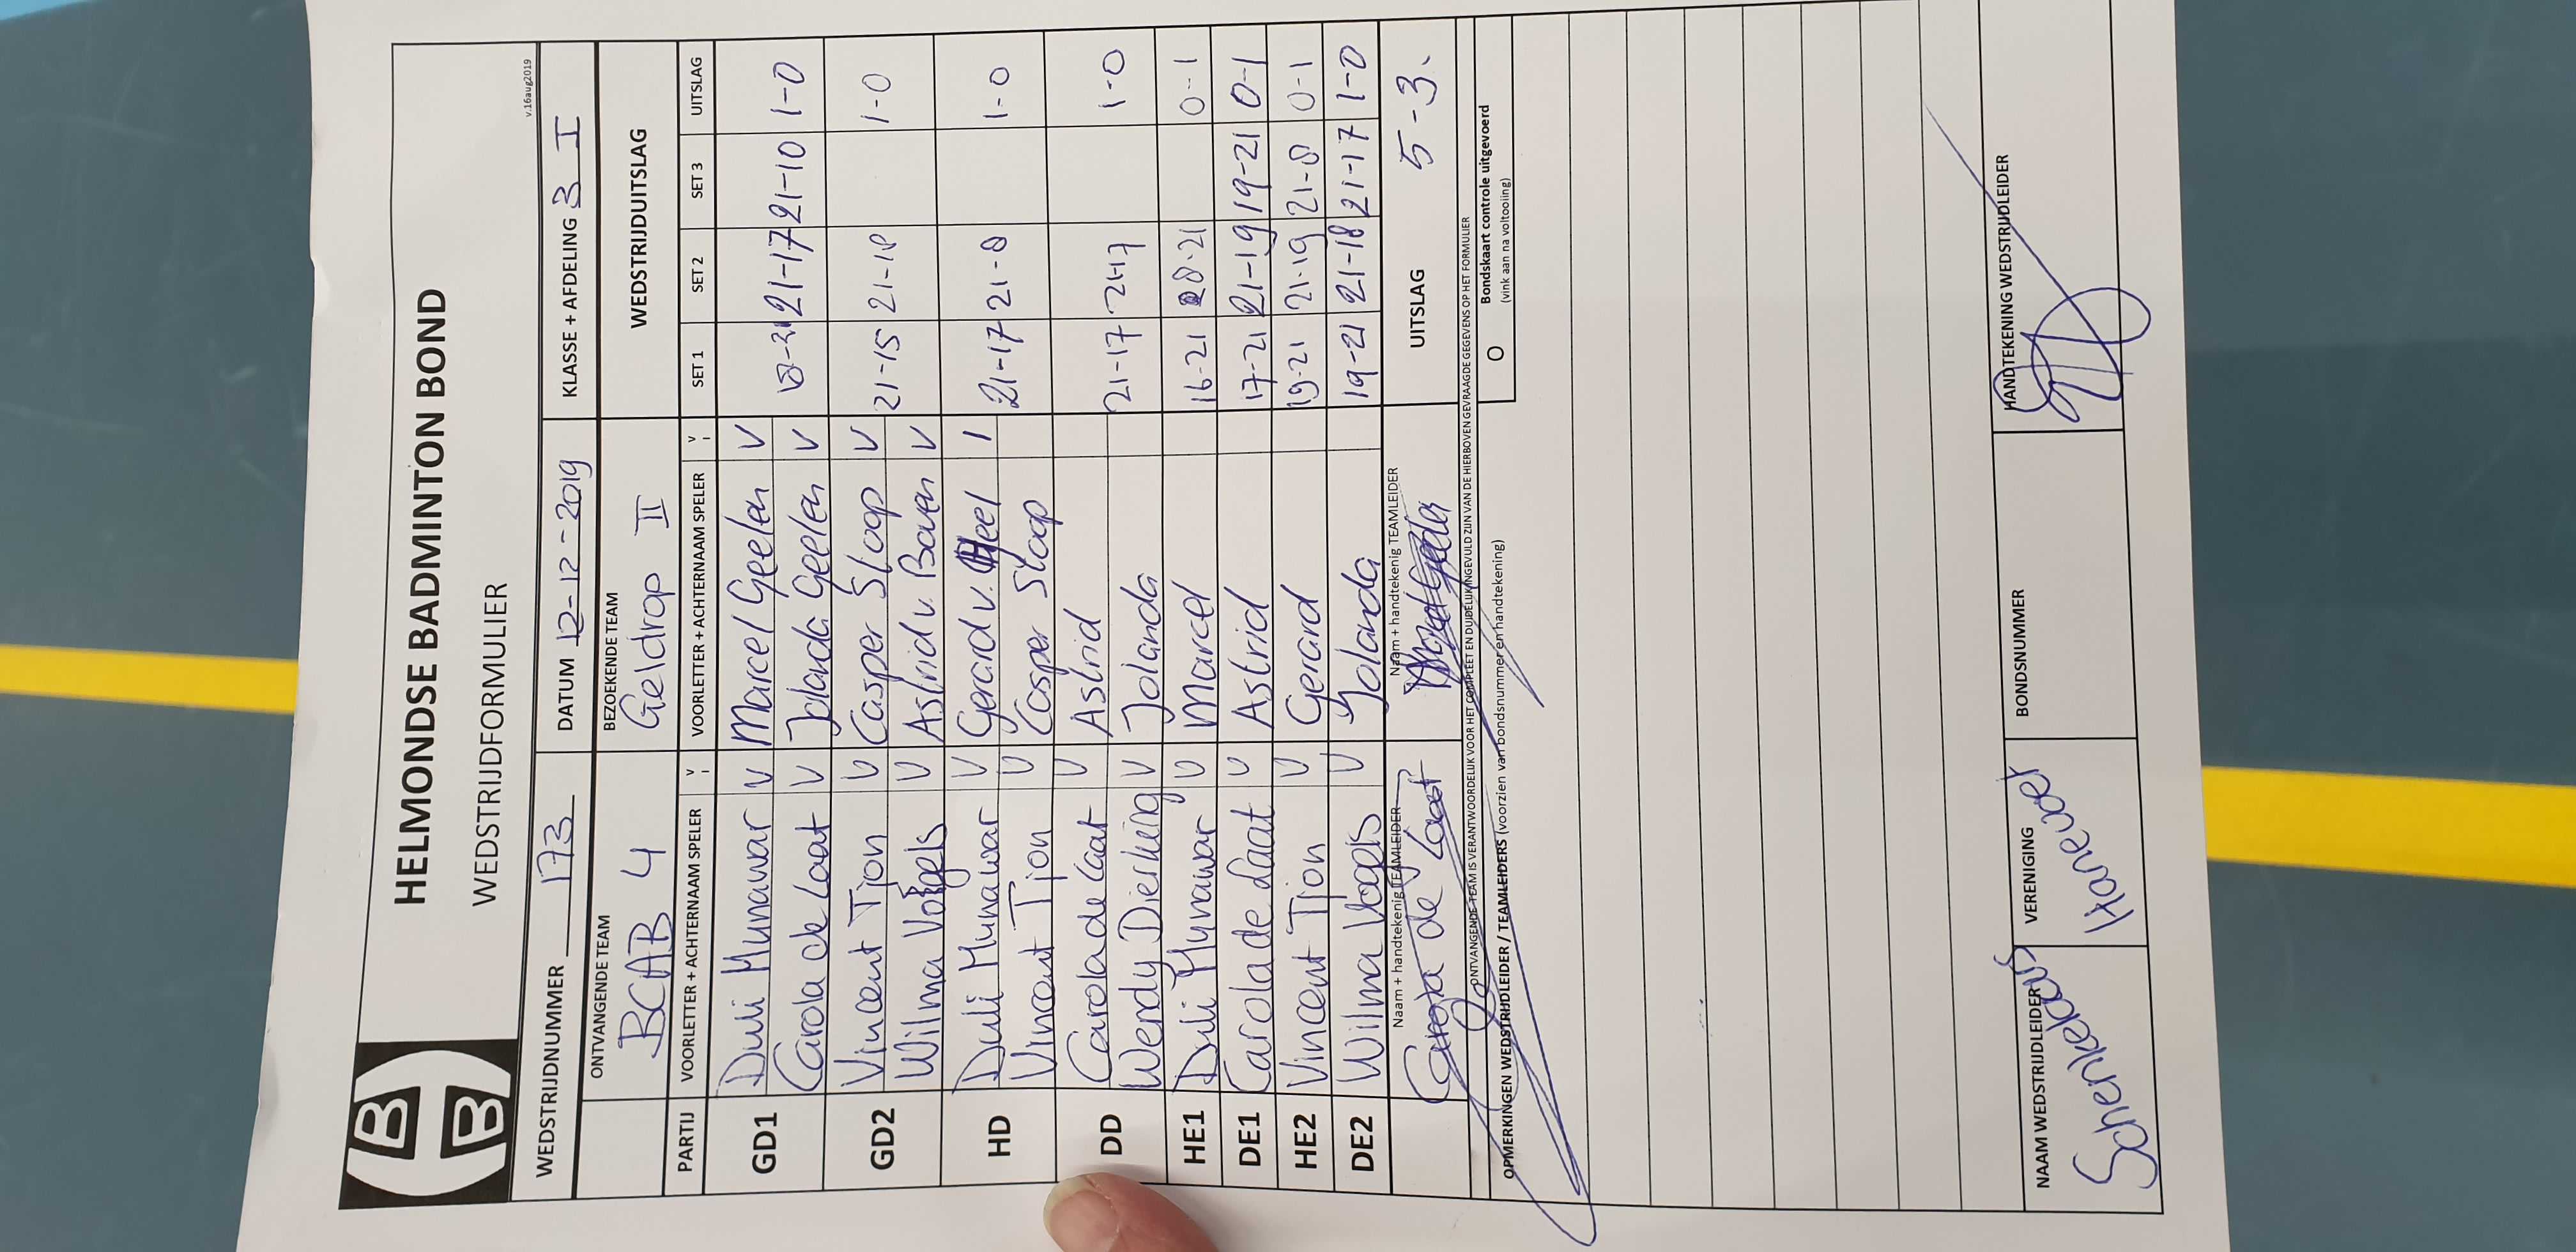 HELMONDSE BADMINTON BOND
WEDSTRIJDFORMULIER
v.16aug2019
WEDSTRIJDNUMMER 173 DATUM 12-12-2019 KLASSE + AFDELING 3 I
ONTVANGENDE TEAM BEZOEKENDE TEAM WEDSTRIJDUITSLAG
BCAB 4 Geldrop II
PARTIJ VOORLETTER + ACHTERNAAM SPELER V VOORLETTER + ACHTERNAAM SPELER V SET 1 SET 2 SET 3 UITSLAG
GD1 Duli Munawar V Marcel Geelen V 21-17 21-10 1-0
Carola de Laat V Jolanda Geelen V
GD2 Vincent Tjon V Casper Sloop V 21-15 21-18 1-0
Wilma Vogels V Astrid v. Boven V
HD Duli Munawar V Gerard v. Heel 1 21-17 21-8 1-0
Vincent Tjon V Casper Sloop
DD Carola de Laat V Astrid 21-17 21-17 1-0
Wendy Dierking V Jolanda
HE1 Duli Munawar V Marcel 16-21 18-21 0-1
DE1 Carola de Laat V Astrid 17-21 21-19 19-21 0-1
HE2 Vincent Tjon V Gerard 19-21 21-19 21-8 0-1
DE2 Wilma Vogels V Jolanda 19-21 21-18 21-17 1-0
Naam + handtekenig TEAMLEIDER Naam + handtekenig TEAMLEIDER UITSLAG 5-3.
Carola de Laat
ONTVANGENDE TEAM IS VERANTWOORDELIJK VOOR HET COMPLEET EN DUIDELIJK INGEVULD ZIJN VAN DE HIERBOVEN GEVRAAGDE GEGEVENS OP HET FORMULIER
OPMERKINGEN WEDSTRIJDLEIDER / TEAMLEIDERS (voorzien van bondsnummer en handtekening)
O Bondskaart controle uitgevoerd
(vink aan na voltooiing)
NAAM WEDSTRIJDLEIDER VERENIGING BONDSNUMMER HANDTEKENING WEDSTRIJDLEIDER